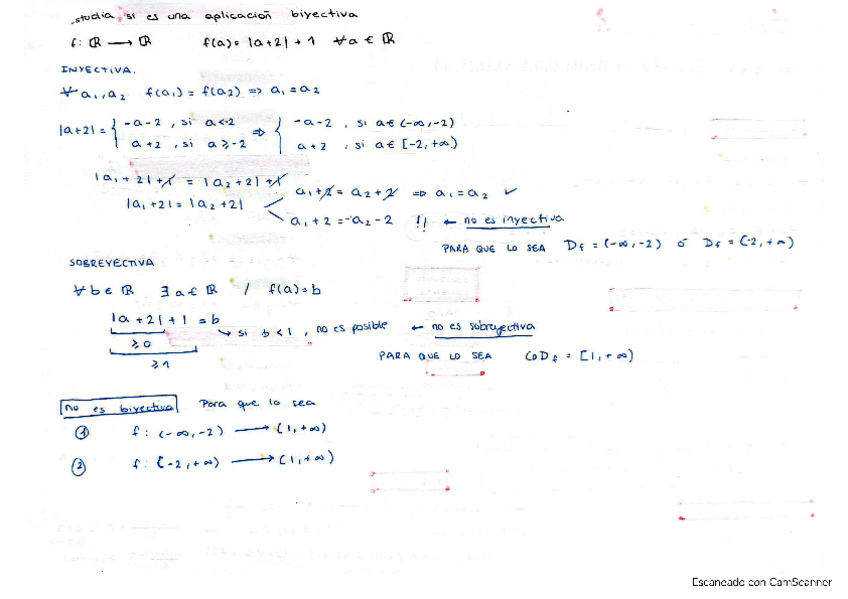 studia si es una aplicación biyectiva
f: ℝ → ℝ f(a) = |a+2| + 1 ∀a ∈ ℝ
INYECTIVA.
∀ a₁, a₂ f(a₁) = f(a₂) => a₁ = a₂
|a+2| = { -a-2 , si a<-2 => { -a-2 , si a ∈ (-∞,-2)
a+2 , si a ≥ -2 a+2 , si a ∈ [-2, +∞)
|a₁ + 2| + 1 = |a₂ + 2| + 1
a₁ + 2 = a₂ + 2 => a₁ = a₂ ✓
|a₁ + 2| = |a₂ + 2|
a₁ + 2 = -a₂ - 2 !! ← no es inyectiva
PARA QUE LO SEA Df = (-∞, -2) ó Df = (-2, +∞)
SOBREYECTIVA
∀ b ∈ ℝ ∃ a ∈ ℝ / f(a) = b
|a + 2| + 1 = b
↳ si b < 1, no es posible ← no es sobreyectiva
≥ 0
≥ 1
PARA QUE LO SEA CoDf = [1, +∞)
no es biyectiva Para que lo sea
① f: (-∞, -2) → (1, +∞)
② f: [-2, +∞) → [1, +∞)
Escaneado con CamScanner